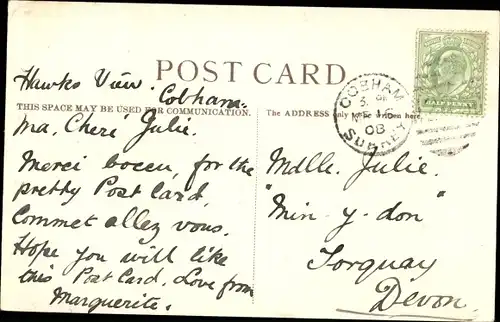 POST CARD.
THIS SPACE MAY BE USED FOR COMMUNICATION.
The ADDRESS only
Hawks View.
Cobham.
Ma, Cheri Julie.
Merci boceu, for the
pretty Post Card,
Commet allez vous.
Hope you will like
this Post Card. Love from
Marguerite.
COBHAM
SURREY
08
HALF PENNY
Mdlle. Julie.
"Min-y-don"
Torquay
Devon.